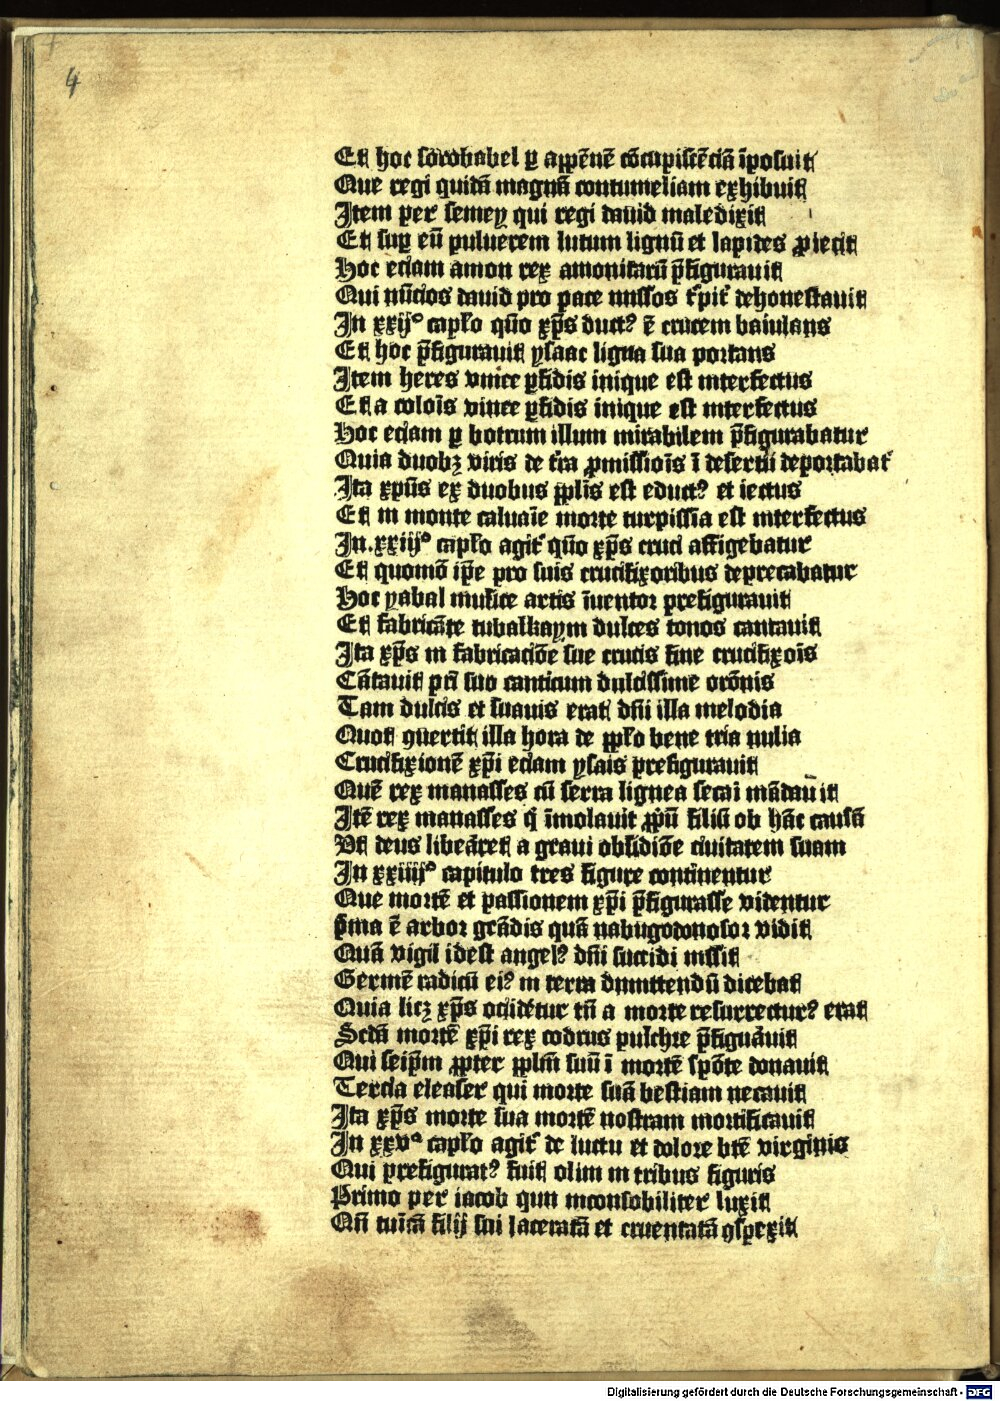 4
Et hoc sorobabel ꝑ aꝑpēnē cōcupiscēciā īposuit
Que regi quidā magnā contumeliam exhibuit
Item per semey qui regi dauid maledixit
Et sup eū puluerem lutum lignū et lapides ꝓiecit
Hoc eciam amon rex amonitarū p̄figurauit
Qui nūcios dauid pro pace missos t᷑pit᷑ dehonestauit
In xxij° capl̓o qūo xp̄s duct⁹ ē crucem baiulans
Et hoc p̄figurauit ysaac ligna sua portans
Item heres vinee ꝑfidis inique est interfectus
Et a coloīs vinee ꝑfidis inique est interfectus
Hoc eciam ꝑ botrum illum mirabilem p̄figurabatur
Quia duobꝫ viris de t̓ra ꝓmissiōis ī desertū deportabat᷑
Ita xpūs ex duobus ꝓplīs est educt⁹ et iectus
Et in monte caluaīe morte turpissīa est interfectus
In.xxiij° capl̓o agit᷑ qūo xp̄s cruci affigebatur
Et quomō ip̄e pro suis crucifixoribus deprecabatur
Hoc yabal musice artis īuentor prefigurauit
Et fabricāte tubalkaym dulces tonos cantauit
Ita xp̄s in fabricaciōe sue crucis siue crucifixōis
Cātauit pr̄i suo canticum dulcissime orōnis
Tam dulcis et suauis erat dn̄i illa melodia
Quot ꝯuertit illa hora de ꝓpl̓o bene tria milia
Crucifixionē xp̄i eciam ysais prefigurauit
Quē rex manasses cū serra lignea secari mādauit
Itē rex manasses q̄ īmolauit ꝓpū filiū ob hāc causā
Vt deus liberāret a graui obsidiōe ciuitatem suam
In xxiiij° capitulo tres figure continentur
Que mortē et passionem xp̄i p̄figurasse videntur
Pma ē arbor grādis quā nabugodonosor vidit
Quā vigil idest angel⁹ dn̄i succidi iussit
Germē radicū ei⁹ in terra dimittendū dicebat
Quia licꝫ xp̄s occidētur tn̄ a morte resurrectur⁹ erat
Scdā mortē xp̄i rex codrus pulchre p̄figurāuit
Qui seip̄m ꝓpter ꝓplm̄ suū ī mortē spōte donauit
Tercia eleaser qui morte suā bestiam necauit
Ita xp̄s morte sua mortē nostram mortificauit
In xxv° capl̓o agit᷑ de luctu et dolore btē virginis
Qui prefigurat⁹ fuit olim in tribus figuris
Primo per iacob qui inconsobiliter luxit
Qn̄ tuīcā filij sui laceratā et cruentatā ꝯspexit
Digitalisierung gefördert durch die Deutsche Forschungsgemeinschaft - DFG